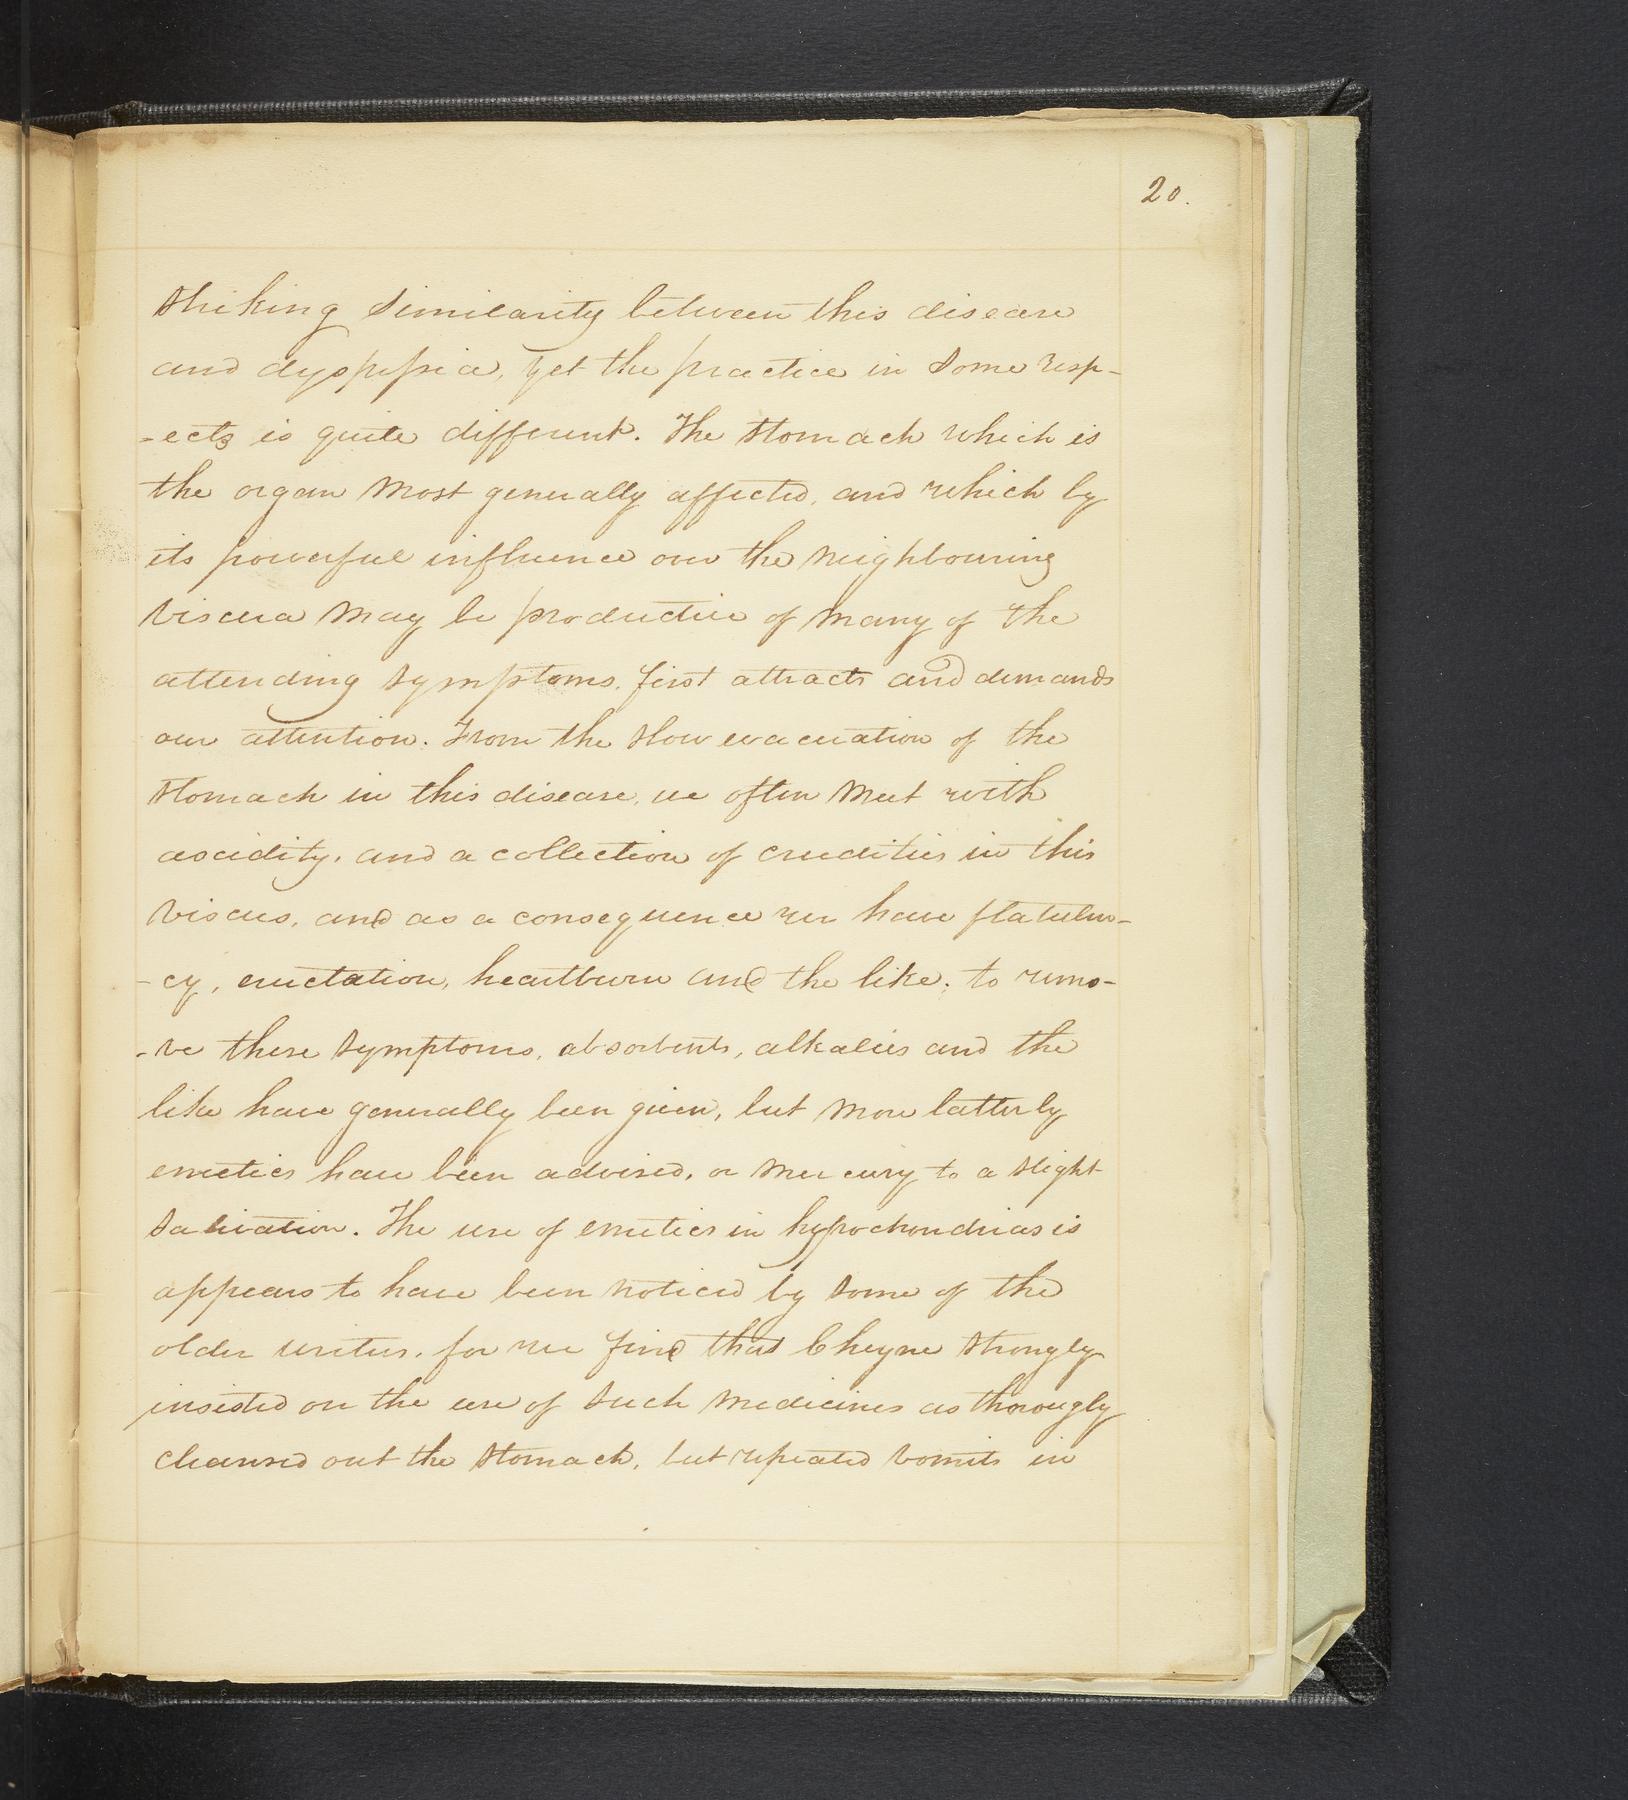 20.
striking similarity between this disease
and dyspepsia, yet the practice in some resp-
-ects is quite different. The stomach which is
the organ most generally affected, and which by
its powerful influence over the neighbouring
viscera may be productive of many of the
attending symptoms, first attracts and demands
our attention. From the slow evacuation of the
stomach in this disease, we often meet with
ascidity, and a collection of crudities in this
viscus, and as a consequence we have flatulen-
-cy, eructation, heartburn and the like; to remo-
-ve these symptoms, absorbents, alkalies and the
like have generally been given, but more latterly
emetics have been advised, or mercury to a slight
salivation. The use of emetics in hypochondriasis
appears to have been noticed by some of the
older writers, for we find that Cheyne strongly
insisted on the use of such medicines as thorougly
cleansed out the stomach, but repeated vomits in